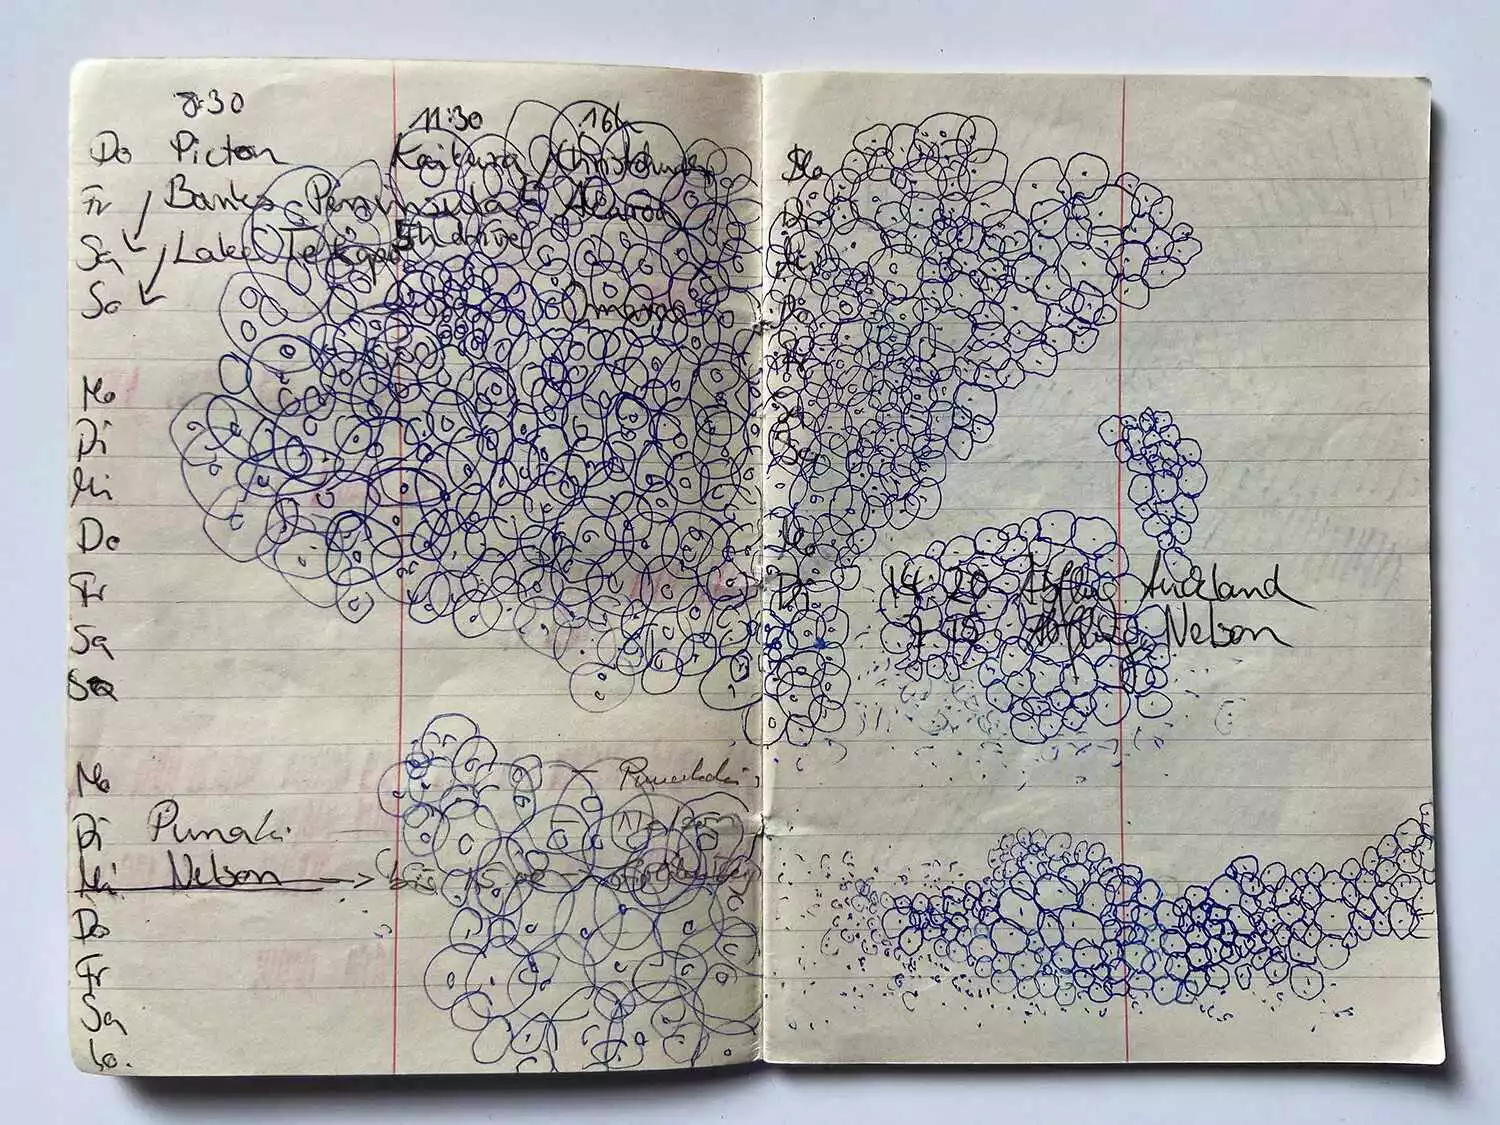 8:30 11:30 16h
Do Picton Kaikura Christchurch
Fr Banks Peninsula Akaroa
Sa Lake Tekapo 5h drive
So Omarama
Mo
Di
Mi
Do
Fr
Sa
So
Mo Punakaiki
Di Punaki
Mi Nelson → bis 15
Do
Fr
Sa
So.
Mo
Di
Mi
Do
Fr
Sa
So
Mo
Di 14 20 Abflug Auckland
7 15 Abflug Nelson